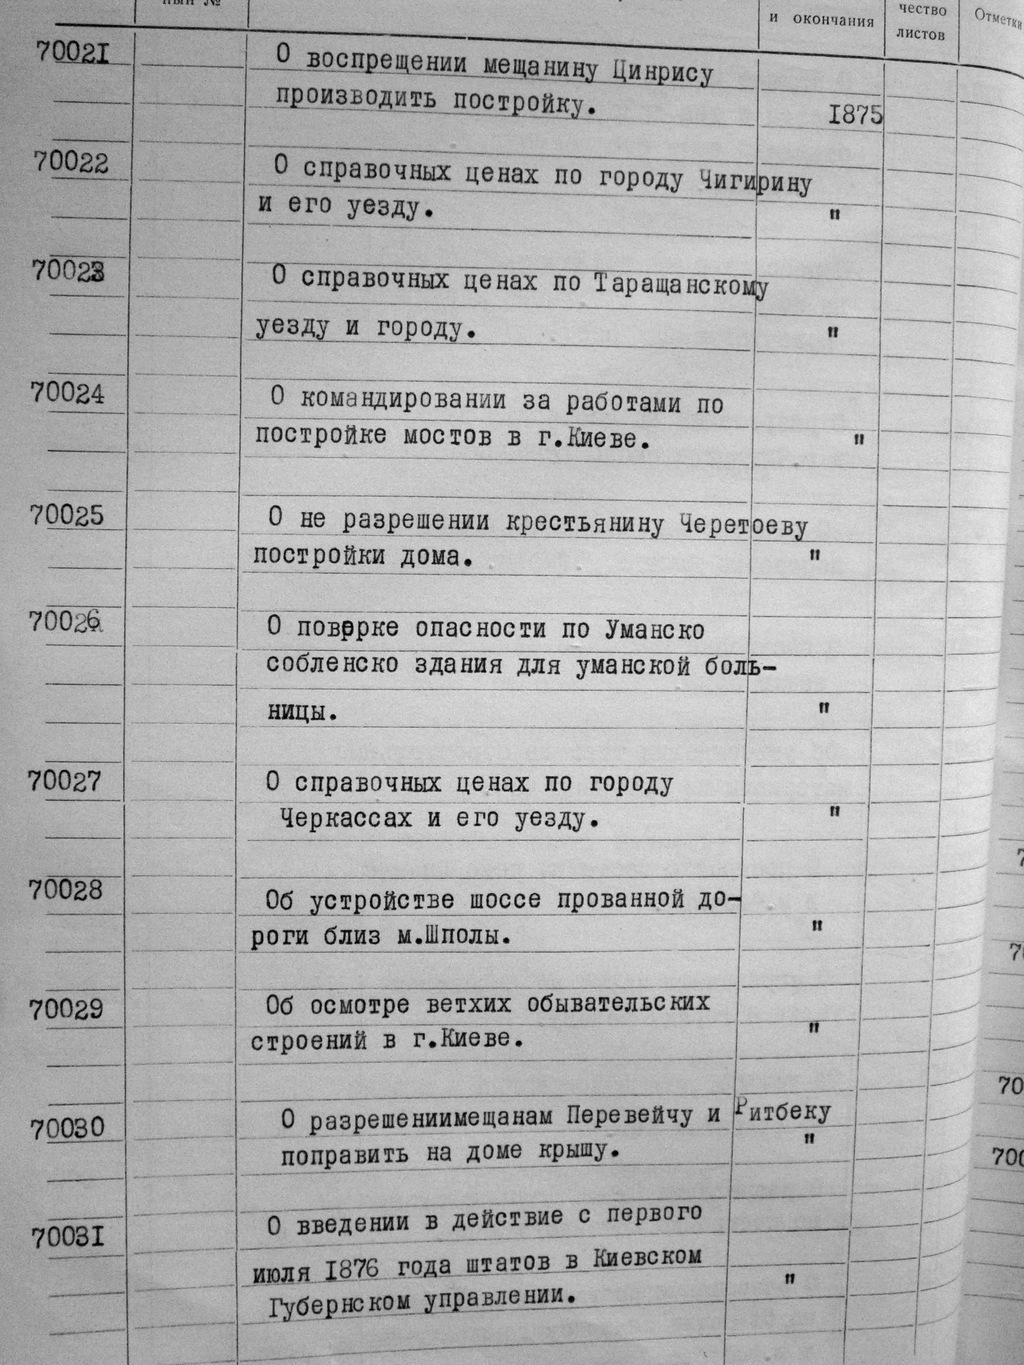 ный №
и окончания
чество
листов
Отметки
70021
О воспрещении мещанину Цинрису
производить постройку.
1875
70022
О справочных ценах по городу Чигирину
и его уезду.
"
70023
О справочных ценах по Таращанскому
уезду и городу.
"
70024
О командировании за работами по
постройке мостов в г.Киеве.
"
70025
О не разрешении крестьянину Черетоеву
постройки дома.
"
70026
О поверке опасности по Уманско
собленско здания для уманской боль-
ницы.
"
70027
О справочных ценах по городу
Черкассах и его уезду.
"
70028
Об устройстве шоссе прованной до-
роги близ м.Шполы.
"
70029
Об осмотре ветхих обывательских
строений в г.Киеве.
"
70030
О разрешениимещанам Перевейчу и Ритбеку
поправить на доме крышу.
"
70031
О введении в действие с первого
июля 1876 года штатов в Киевском
Губернском управлении.
"